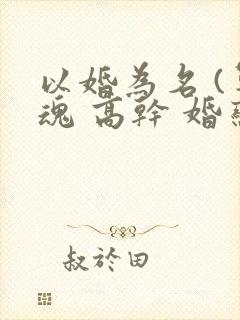 以婚為名(
魂 高幹 婚
叔於田